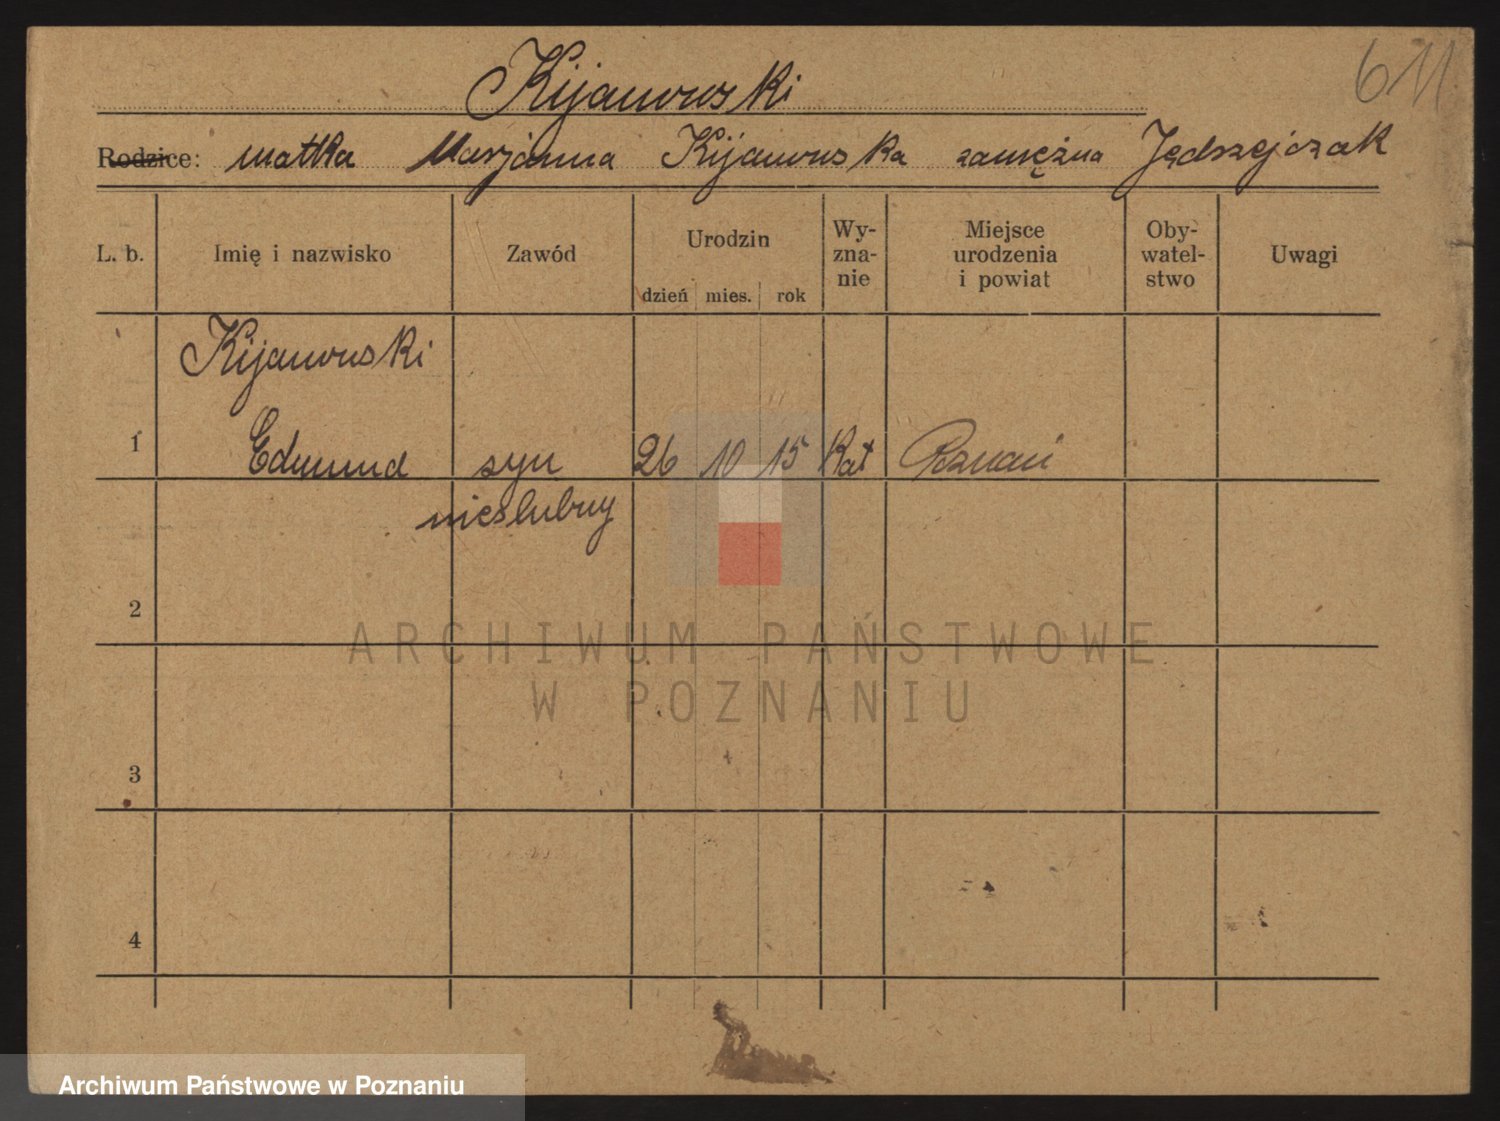 611
Kijanowski
Rodzice: matka Marjanna Kijanowska zamężna Jędrzejczak
L. b. Imię i nazwisko Zawód Urodzin dzień mies. rok Wy-
zna-
nie Miejsce
urodzenia
i powiat Oby-
watel-
stwo Uwagi
Kijanowski
1 Edmund syn 26 10 15 Kat Poznań
nieślubny
2
ARCHIWUM PAŃSTWOWE
W POZNANIU
3
4
Archiwum Państwowe w Poznaniu